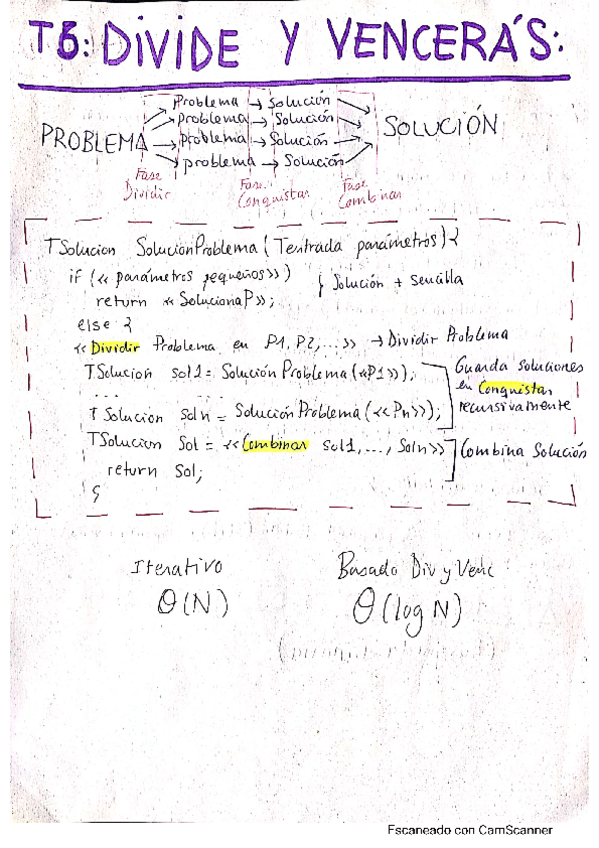 T6: DIVIDE Y VENCERÁS:
Problema → Solución
problema → Solución
PROBLEMA → problema → Solución → SOLUCIÓN
problema → Solución
Fase Dividir
Fase Conquistar
Fase Combinar
TSolucion SolucionProblema (Tentrada parámetros) {
if (<< parámetros pequeños>>) } Solución + sencilla
return << SolucionaP>>;
else {
<< Dividir Problema en P1, P2, ...>> → Dividir Problema
TSolucion sol1 = SoluciónProblema(<<P1>>); Guarda soluciones
... en Conquistar
TSolucion soln = SoluciónProblema (<<Pn>>); recursivamente
TSolucion Sol = <<Combinar sol1, ..., Soln>> Combina Solución
return Sol;
}
Iterativo Basado Div y Venc
Θ(N) Θ(log N)
Escaneado con CamScanner